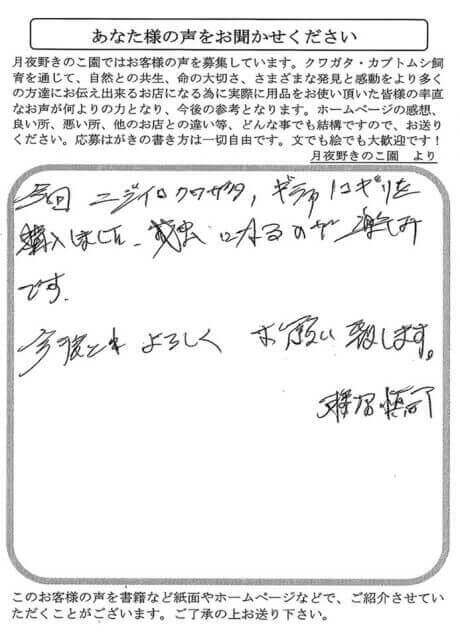 あなた様の声をお聞かせください
月夜野きのこ園ではお客様の声を募集しています。クワガタ・カブトムシ飼
育を通じて、自然との共生、命の大切さ、さまざまな発見と感動をより多く
の方達にお伝え出来るお店になる為に実際に用品をお使い頂いた皆様の率直
なお声が何よりの力となり、今後の参考となります。ホームページの感想、
良い所、悪い所、他のお店との違い等、どんな事でも結構ですので、お送り
ください。応募はがきの書き方は一切自由です。文でも絵でも大歓迎です！
月夜野きのこ園 より
今回 ニジイロクワガタ，ギラファノコギリを
購入しました。成虫になるのが楽しみ
です。
今後とも よろしく お願い致します。
このお客様の声を書籍など紙面やホームページなどで、ご紹介させてい
ただくことがございます。ご了承の上お送り下さい。